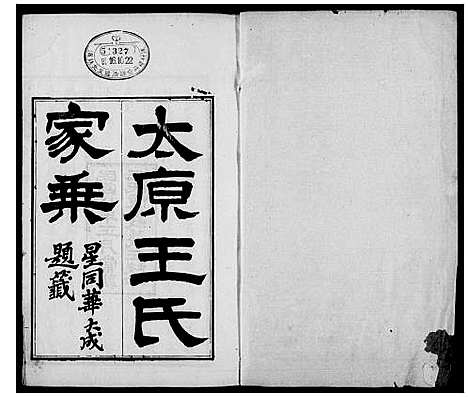 太原王氏
家乘
星同華大成
題籤
51327
16.10.22